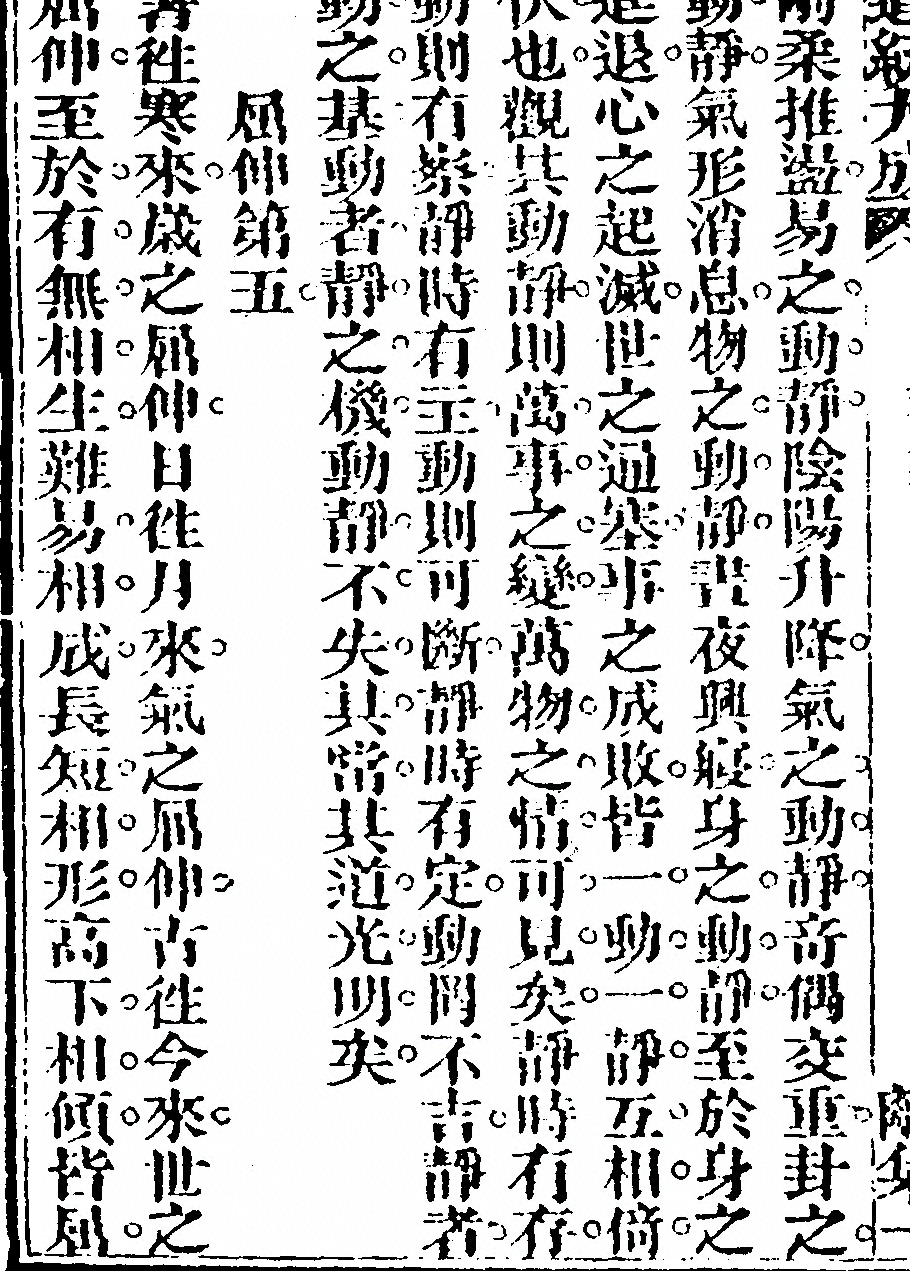 剛柔推盪易之動靜陰陽升降氣之動靜奇偶交重封之
動靜氣形消息物之動靜晝夜興寢身之動靜至於身之
進退心之起滅世之通塞事之成敗皆一動一靜互相倚
伏也觀其動靜則萬事之變萬物之情可見矣靜時有存
動則有察靜時有主動則可斷靜時有定動罔不吉靜者
動之基動者靜之機動靜不失其常其道光明矣
屈伸第五
暑往寒來歲之屈伸日往月來氣之屈伸古往今來世之
屈伸至於有無相生難易相成長短相形高下相傾皆屈